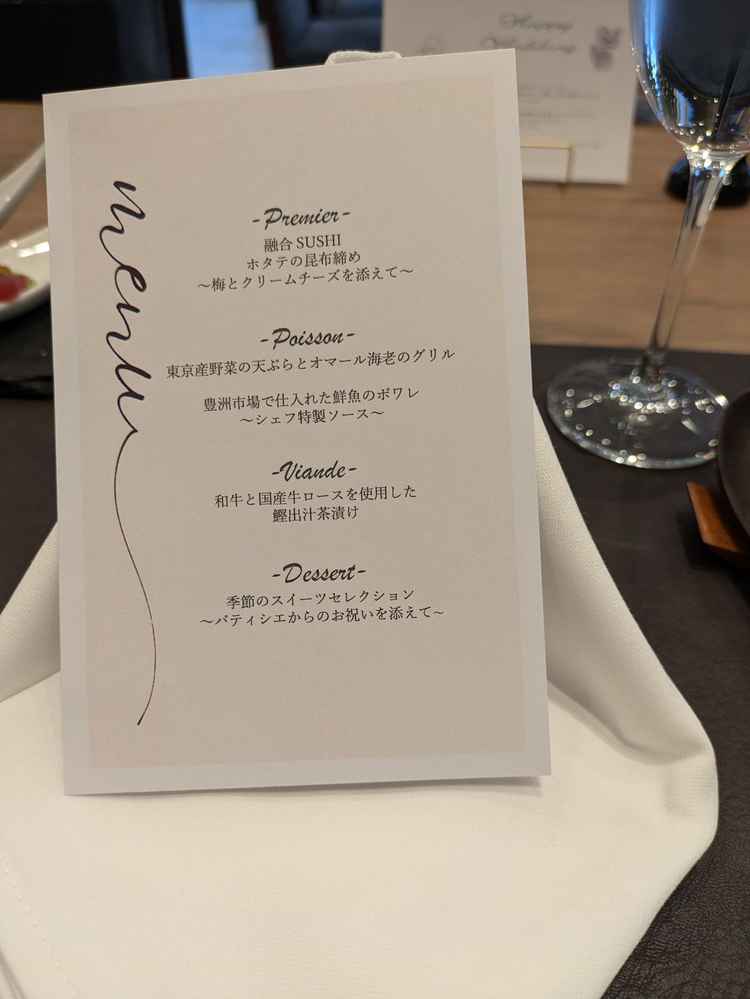 menu
-Premier-
融合 SUSHI
ホタテの昆布締め
〜梅とクリームチーズを添えて〜
-Poisson-
東京産野菜の天ぷらとオマール海老のグリル
豊洲市場で仕入れた鮮魚のポワレ
〜シェフ特製ソース〜
-Viande-
和牛と国産牛ロースを使用した
鰹出汁茶漬け
-Dessert-
季節のスイーツセレクション
〜パティシエからのお祝いを添えて〜
Happy
Wedding